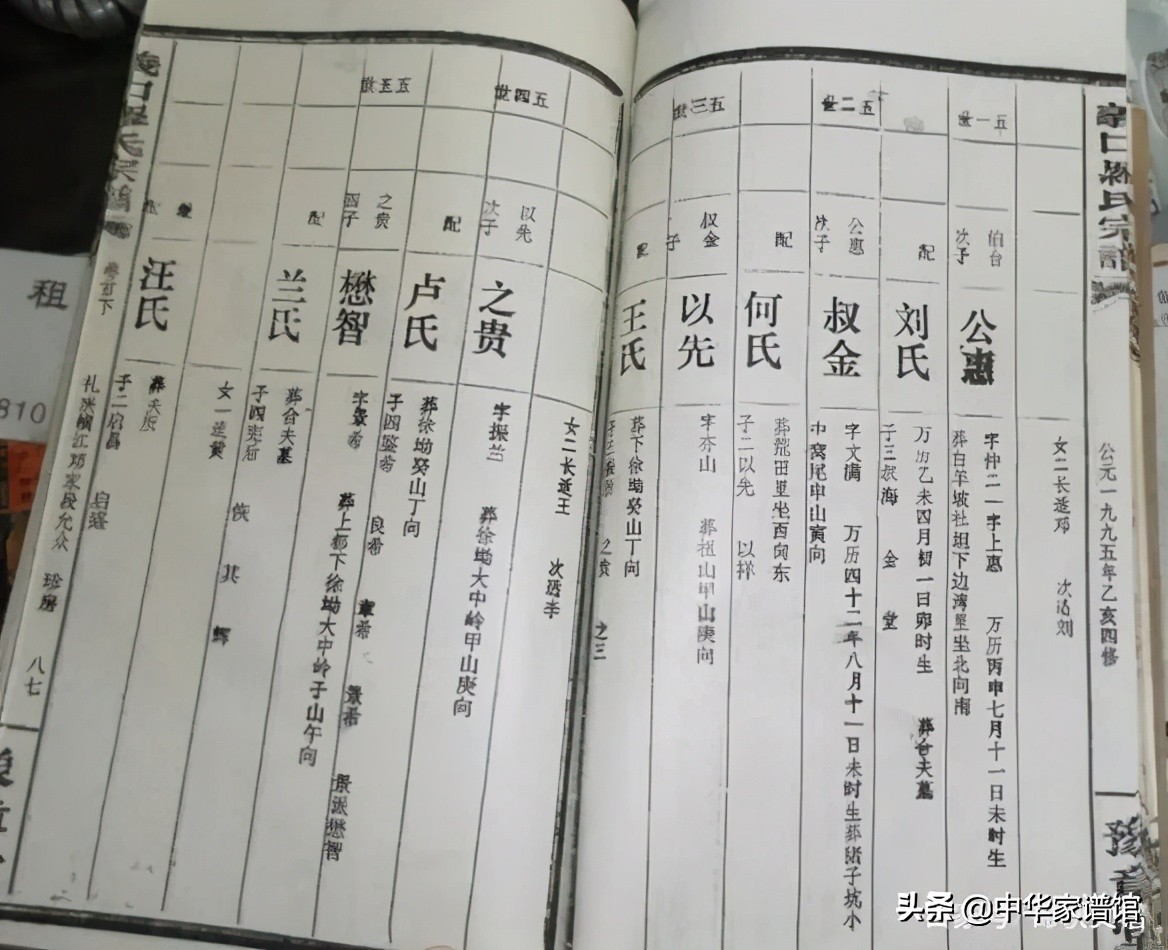 公元一九九五年乙亥四修
女二长适邓 次适刘
五一世
伯台
次子
公惠
字仲二 一字上惠 万历丙申七月十一日未时生
葬白羊坡社坦下边湾里坐北向南
配
刘氏
万历乙未四月初一日卯时生 葬合夫墓
子三叔海 金 堂
五二世
公惠
次子
叔金
字文满 万历四十二年八月十一日未时生葬猪子坑小
中窝尾申山寅向
配
何氏
葬荒田里坐西向东
子二以先 以祥
五三世
叔金
子
以先
字亦山 葬祖山甲山庚向
配
王氏
葬下徐坳癸山丁向
之贵 之三
女二长适王 次适李
五四世
以先
次子
之贵
字振兰 葬徐坳大中岭甲山庚向
配
卢氏
葬徐坳癸山丁向
子四鉴希 良希 章希 景希
五五世
之贵
四子
懋智
字景希 葬上都下徐坳大中岭子山午向
景派懋智
配
兰氏
葬合夫墓
子四
恢 其 辉
女一适黄
继
配
汪氏
葬夫左
子二启昌 启蕴
卷首下
珍房
八七
租
810
头条 @中华家谱馆